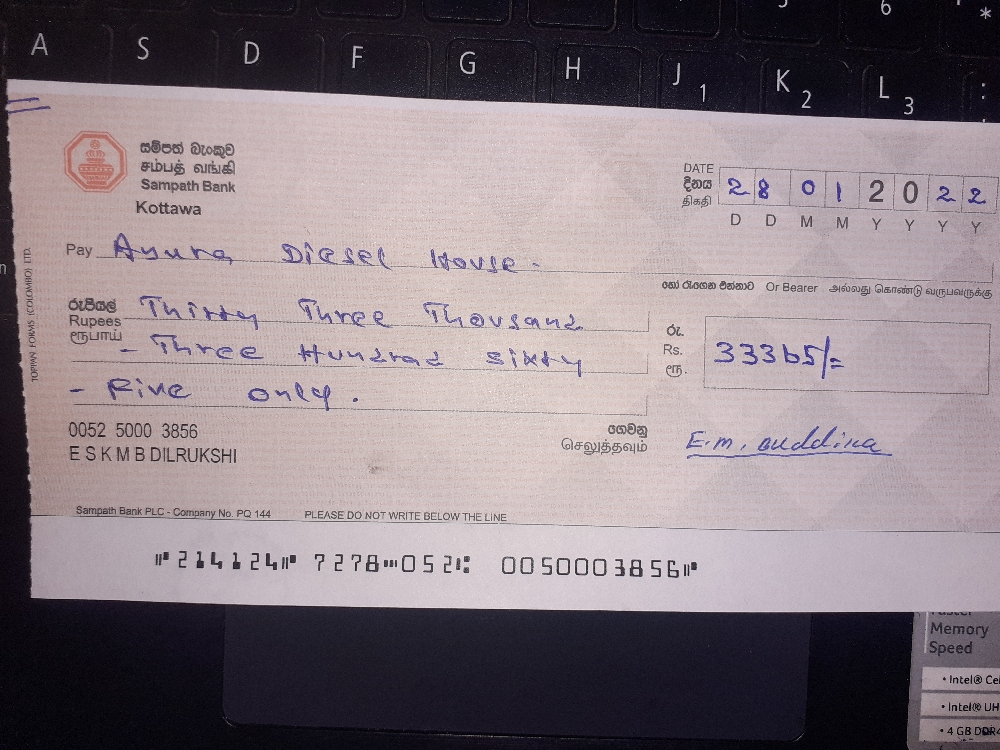 A S D F G H J 1 K 2 L 3 :
6 *
සම්පත් බැංකුව
சம்பத் வங்கி
Sampath Bank
Kottawa
DATE
දිනය
திகதி
28 01 2022
D D M M Y Y Y Y
Pay Ayura Diesel House -
හෝ රැගෙන එන්නාට Or Bearer அல்லது கொண்டு வருபவருக்கு
රුපියල් Thirty Three Thousand
Rupees
ரூபாய் - Three Hundrad Sixty
- Five only.
රු.
Rs. 33365/=
ரூ.
0052 5000 3856
E S K M B DILRUKSHI
ගෙවනු
செலுத்தவும்
E.m.
TOPPAN FORMS (COLOMBO) LTD.
Sampath Bank PLC - Company No. PQ 144 PLEASE DO NOT WRITE BELOW THE LINE
⑈214124⑈ 7278⑉052⑆ 0050003856⑈
Faster
Memory
Speed
• Intel® Cel
• Intel® UH
• 4 GB DDR4